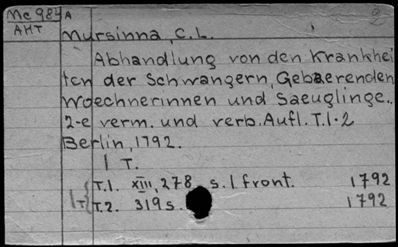 Mc 984 A
AHT
Mursinna, C.L.
Abhandlung von den Krankhei
ten der Schwangern, Gebaerenden
Woechnerinnen und Saeuglinge..
2-e verm. und verb. Aufl. T.1-2
Berlin, 1792.
1 T.
T.1. XIII, 278 s. 1 front. 1792
1 T. T.2. 319 s. 1792